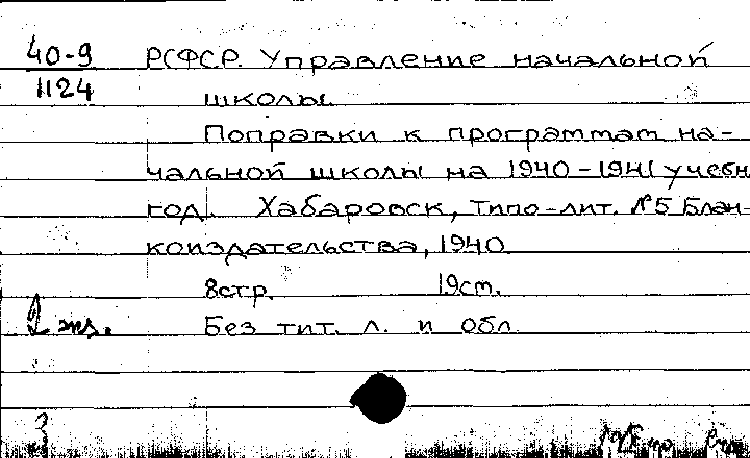 40-9 РСФСР. Управление начальной
1124 школы.
Поправки к программам на-
чальной школы на 1940-1941 учебн
год. Хабаровск, Типо-лит. №5 Блан-
коиздательства, 1940
8стр. 19см.
2 экз. Без тит. л. и обл
3